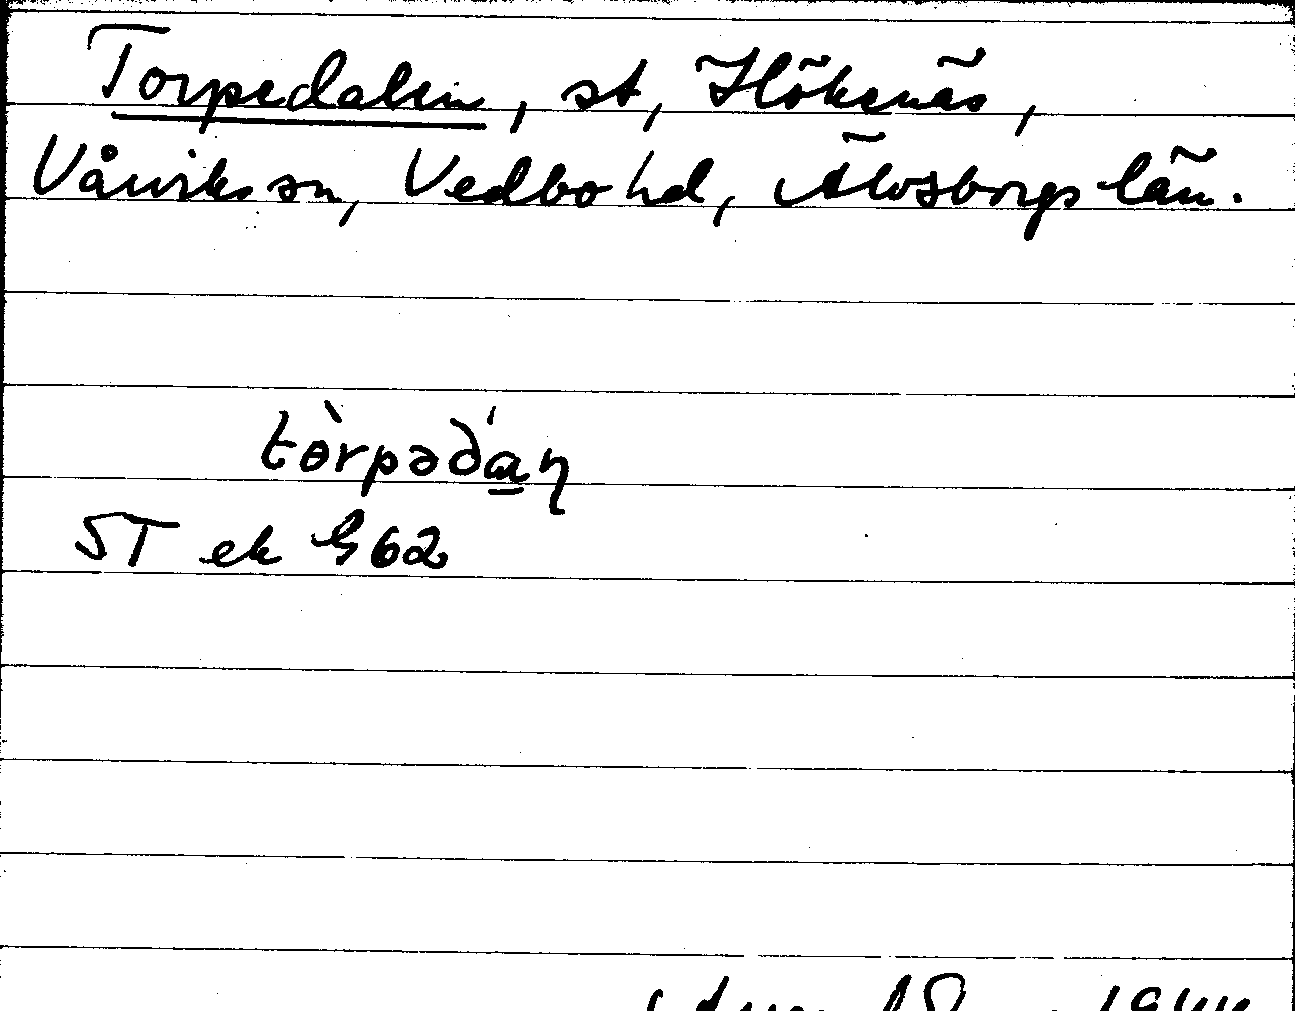 Torpedalen, st, Höksnäs,
Vårviks sn, Vedbo hd, Älvsborgs län.
tòrpədáη
ST ek G 62